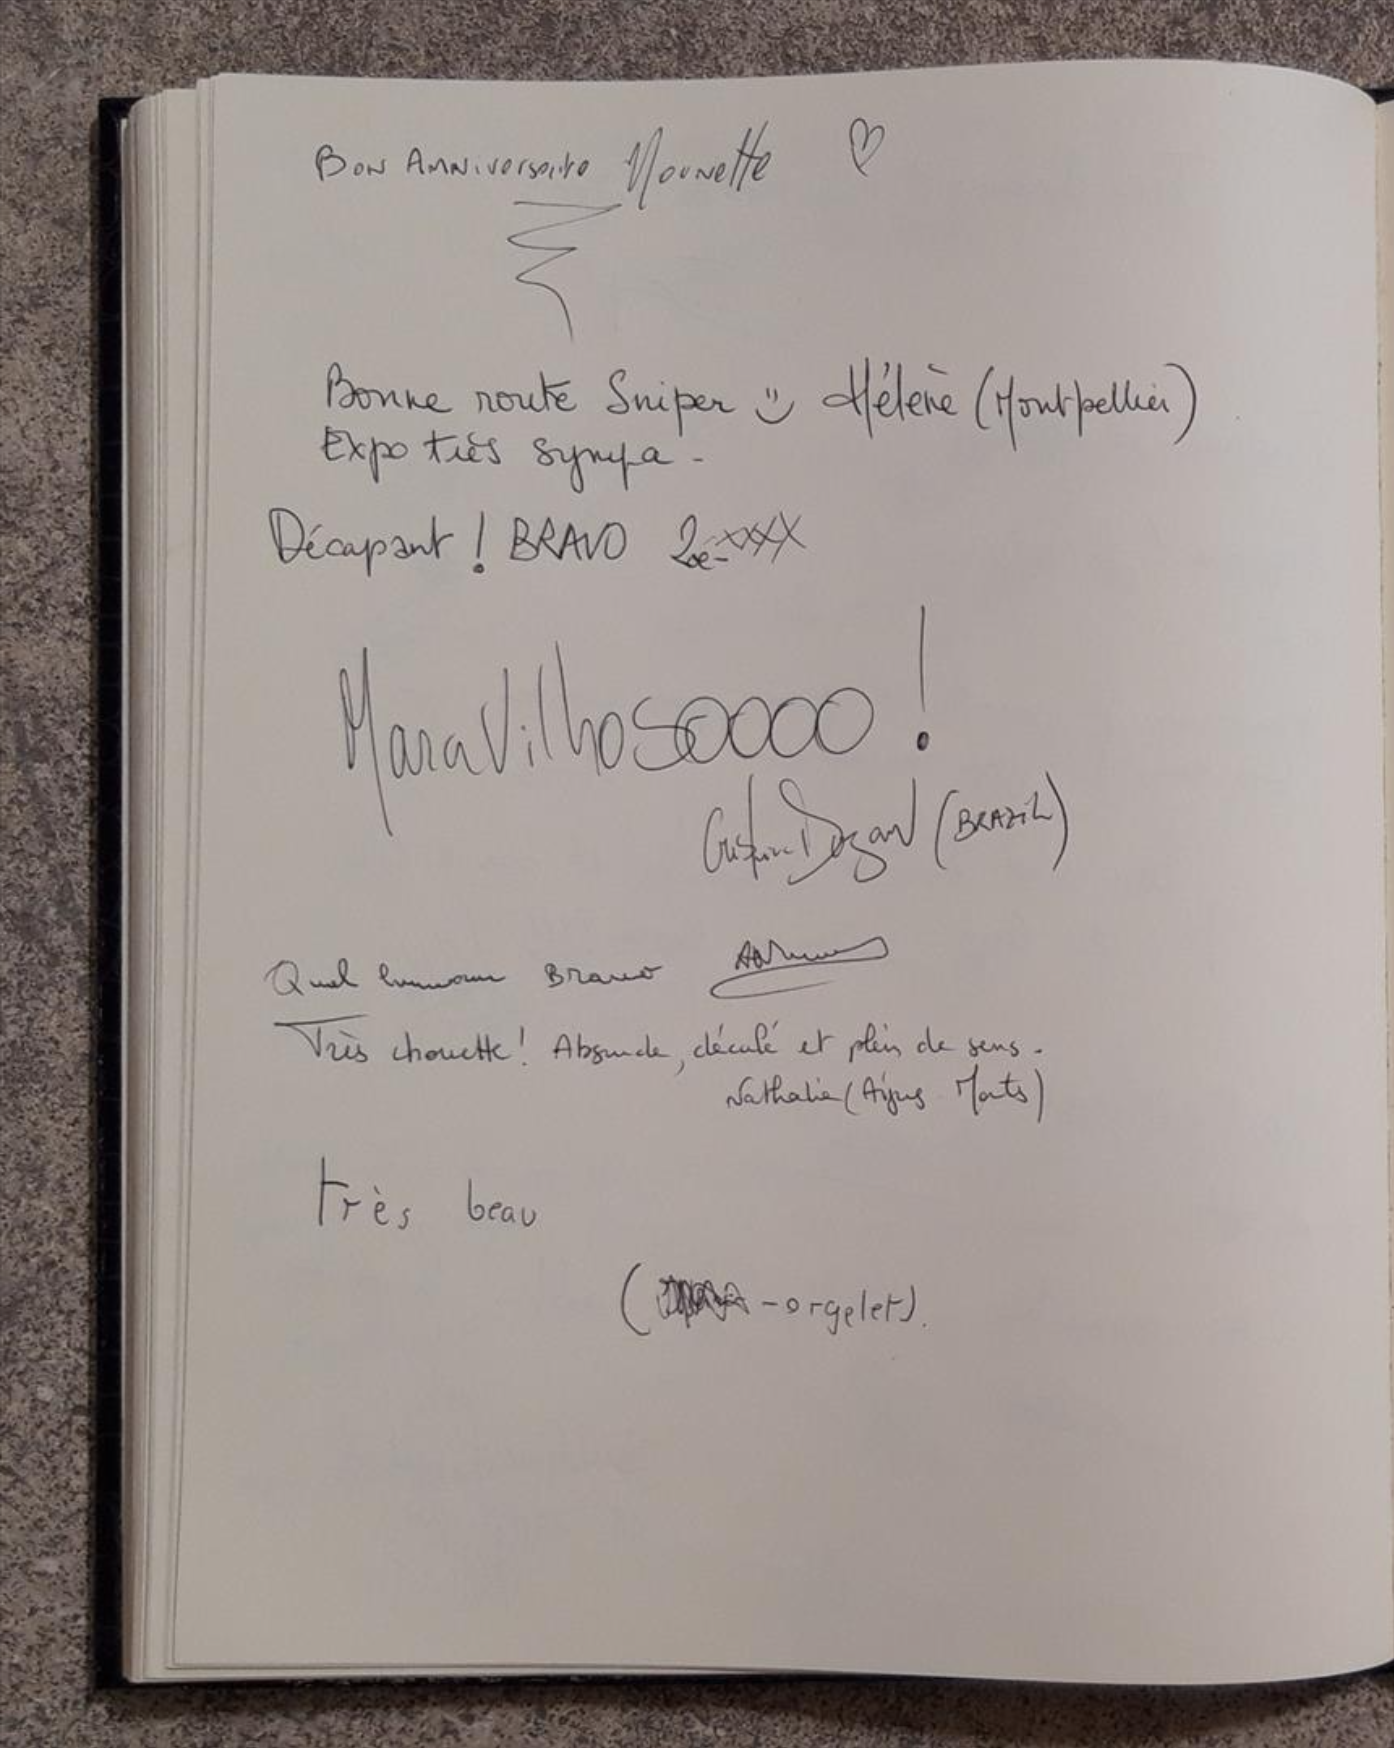 Bon Anniversaire Nounette ♡
Bonne route Sniper Hélène (Montpellier)
Expo très sympa -
Décapant ! BRAVO Zoé-xxxx
Maravilhosoooo !
(BRAZIL)
Quel humour Bravo
Très chouette ! Absurde, décalé et plein de sens.
Nathalie (Aigues Mortes)
très beau
( -orgelet).